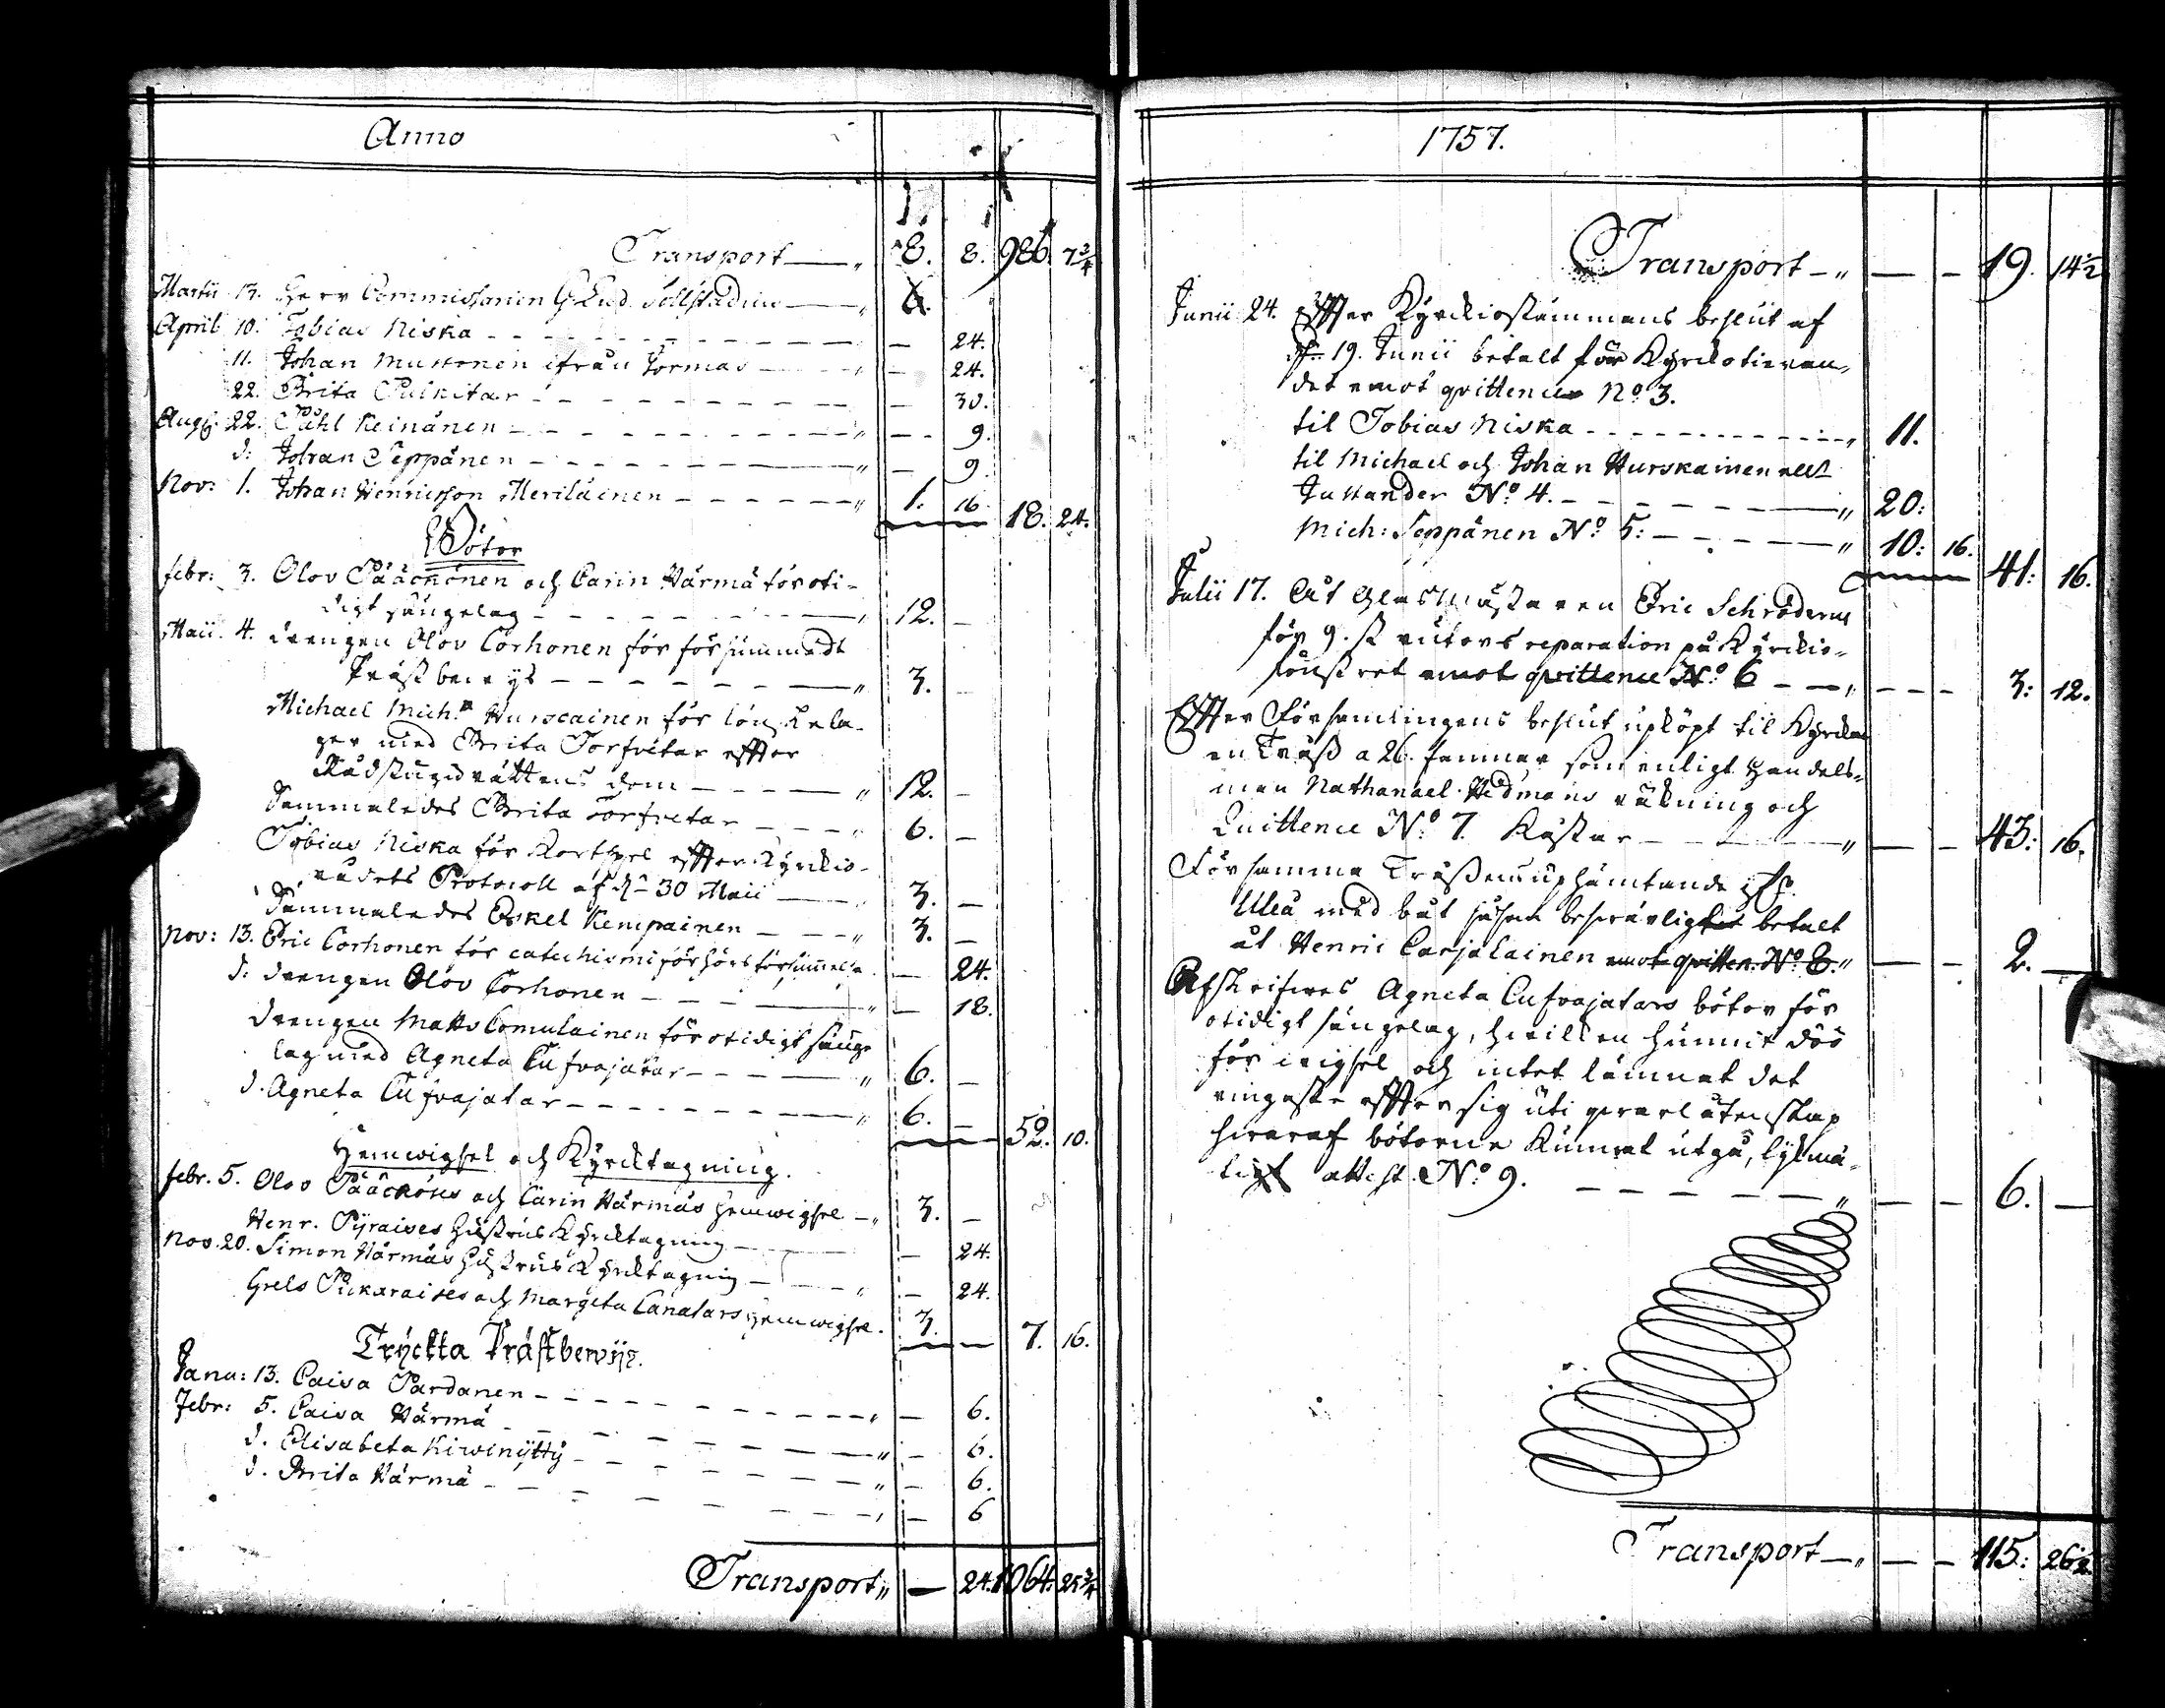 Anno
Transport — 8. 8. 986. 7 3/4
Martii 13. Herr Commissarien G. Lud. — 6.
April 10. Tobias Niska — 24.
11. Johan Mustonen ifrån Sormas — 24.
22. Brita Pulkitar — 30.
Aug. 22. Påhl Keinänen — 9.
d: Johan Seppänen — 9.
Nov: 1. Johan Hennicsson Meriläinen — 1. 16. 18. 24.
Böter
febr: 3. Olov Pääckönen och Carin Härmä för oti-
digt sängelag — 12. —
Maii. 4. drengen Olov Corhonen för försummadt
Prästbewijs — 3. —
Michael Mich: Hurscainen för lönskela-
ger med Brita Torfvetar efter
Rådstugurättens dom — 12. —
Sammaledes Brita Torfvetar — 6. —
Tobias Niska för Kortspel efter Kyrckio-
rådets Protocoll af d: 30 Maii — 3. —
Sammaledes Eskel Kempainen — 3. —
Nov: 13. Eric Corhonen för catechismiförhörs försummelse — 24.
d: drengen Olov Corhonen — 18.
drengen Matts Comulainen för otidigt sänge
lag med Agneta Cufvajatar — 6. —
d. Agneta Cufvajatar — 6. — 52. 10.
Hemwigsel och Kyrcktagning.
febr. 5. Olov Pääckönes och Carin Härmäs hemwigsel — 3. —
Henr. Pyraises hustrus Kyrcktagning — 24.
Nov. 20. Simon Härmäs hustrus Kyrcktagning — 24.
Grels Pikaraises och Margeta Canatars hemwigsel. 3. — 7. 16.
Tryckta Prästbewijs.
Janu: 13. Caisa Pardanen — 6.
Febr: 5. Caisa Härmä — 6.
d. Elisabeta Kiwinytty — 6.
d. Brita Härmä — 6
Transport — 24. 1064. 25 3/4
1757.
Transport — 19. 14 1/2
Junii 24. Efter Kyrckiostämmans beslut af
d: 19. Junii betalt för
det emot qvittence No 3.
til Tobias Niska — 11.
til Michael och Johan Hurskainen
No 4. — 20:
Mich: Seppänen No 5: — 10: 16. 41: 16.
Julii 17. At Glasmästaren Eric Schroderus
för 9. st rutors reparation på Kyrckio-
fönstret emot qvittence No 6 — 3: 12.
Efter Församlingens beslut upköpt til Kyrckan
en a 26. som enligt Handels-
man Nathanael Hedmans räkning och
Quittence No 7. Kåstar — 43: 16.
För samma uphämtande ifr.
Uleå med båt betalt
åt Henric Carjalainen emot qvitten. No 8. — 2. —
Afskrifves Agneta Cufvajatars böter för
otidigt sängelag, hvilken hunnit döö
för wigsel och intet lämnat det
ringaste efter sig uti qvarlåtenskap
hvaraf böterne kunnat utgå, lijkmä-
tigt attest. No 9. — 6. —
Transport — 115: 26 1/2